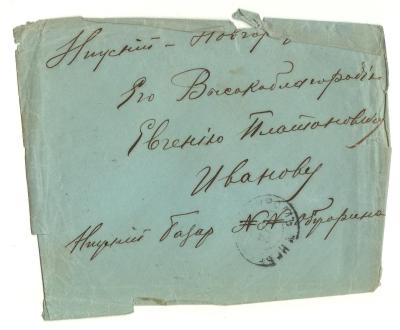 Нижній - Новгор
Его Высокоблагородію
Евгенію Платоновичу
Иванову
Нижній базар